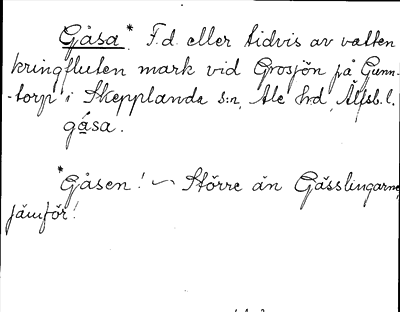 Gåsa* F.d. eller tidvis av vatten
kringfluten mark vid Grosjön på Gunn-
-torp i Skepplanda s:n, Ale hrd, Älfsb.l.
gåsa.
*Gåsen! ~ Större än Gässlingarne,
jämför!